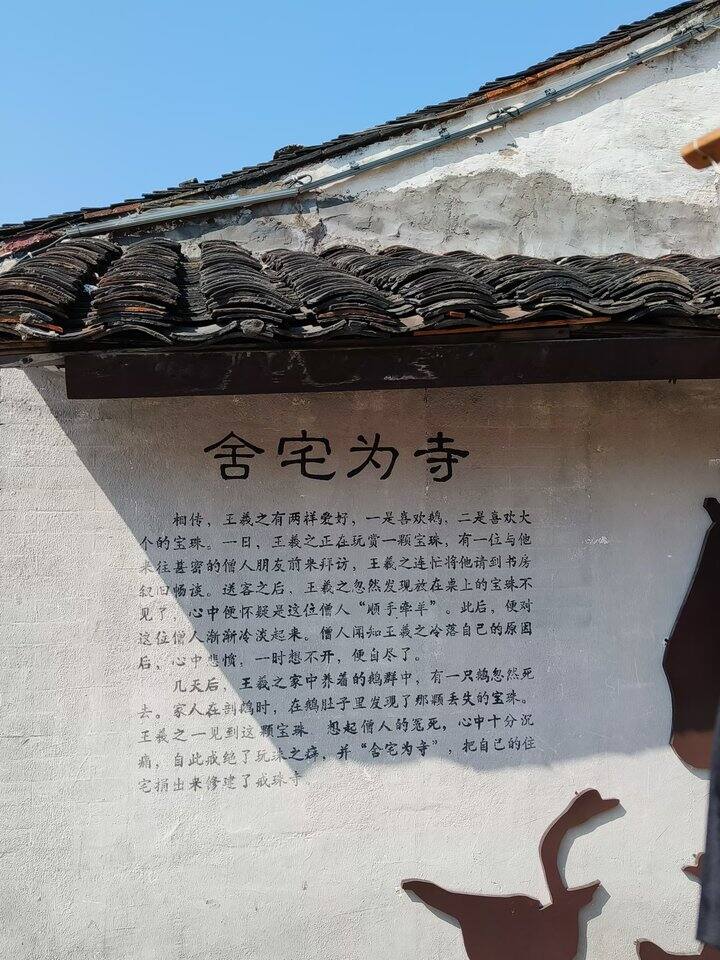 舍宅为寺
相传，王羲之有两样爱好，一是喜欢鹅，二是喜欢大
个的宝珠。一日，王羲之正在玩赏一颗宝珠，有一位与他
来往甚密的僧人朋友前来拜访，王羲之连忙将他请到书房
叙旧畅谈。送客之后，王羲之忽然发现放在桌上的宝珠不
见了，心中便怀疑是这位僧人“顺手牵羊”。此后，便对
这位僧人渐渐冷淡起来。僧人闻知王羲之冷落自己的原因
后，心中悲愤，一时想不开，便自尽了。
几天后，王羲之家中养着的鹅群中，有一只鹅忽然死
去。家人在剖鹅时，在鹅肚子里发现了那颗丢失的宝珠。
王羲之一见到这颗宝珠 想起僧人的冤死，心中十分沉
痛，自此戒绝了玩珠之癖，并“舍宅为寺”，把自己的住
宅捐出来修建了戒珠寺